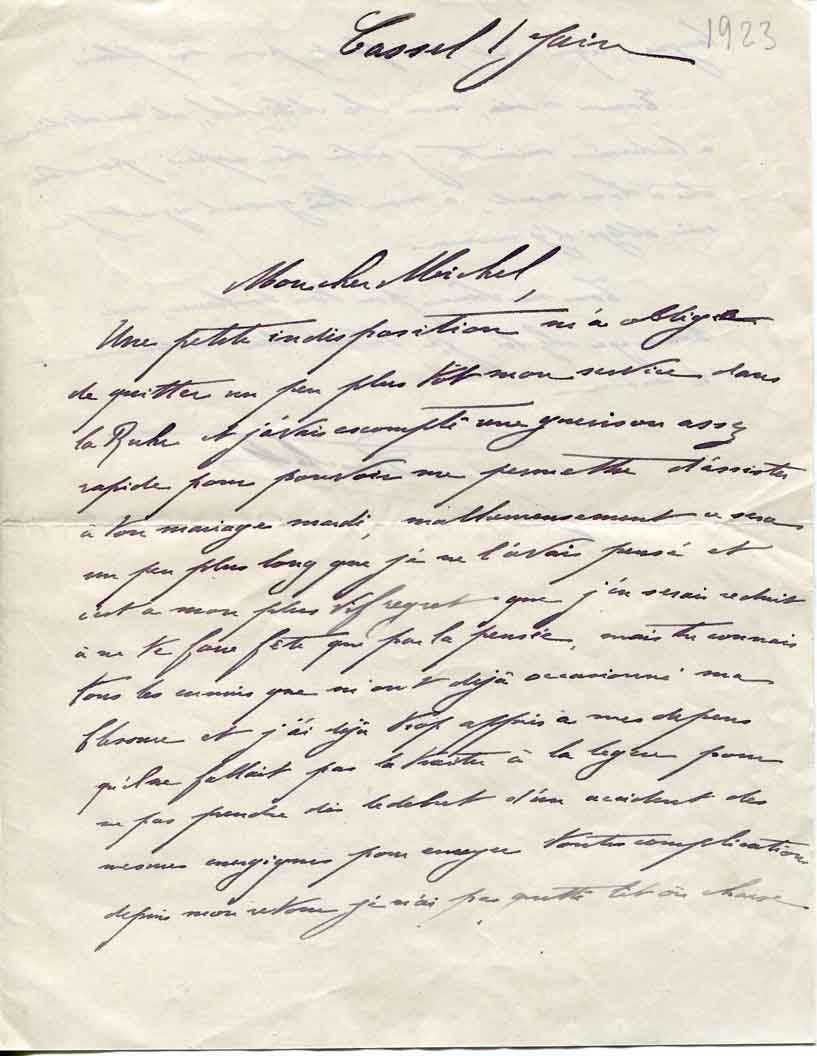 Cassel 1 Juin 1923
Mon cher Michel,
Une petite indisposition m'a obligé
de quitter un peu plus tôt mon service dans
la Ruhr et j'avais escompté une guerison assez
rapide pour pouvoir me permettre d'assister
à ton mariage mardi, malheureusement ce sera
un peu plus long que je ne l'avais pensé et
c'est à mon plus vif regret que j'en serais reduit
à ne te faire fête que par la pensée, mais tu connais
tous les ennuis que m'ont déjà occasionné ma
blessure et j'ai déjà trop appris à mes depens
qu'il ne fallait pas la traiter à la legere pour
ne pas prendre dès le debut d'un accident des
mesures energiques pour enrayer toutes complications
depuis mon retour je n'ai pas quitté lit ou chaise